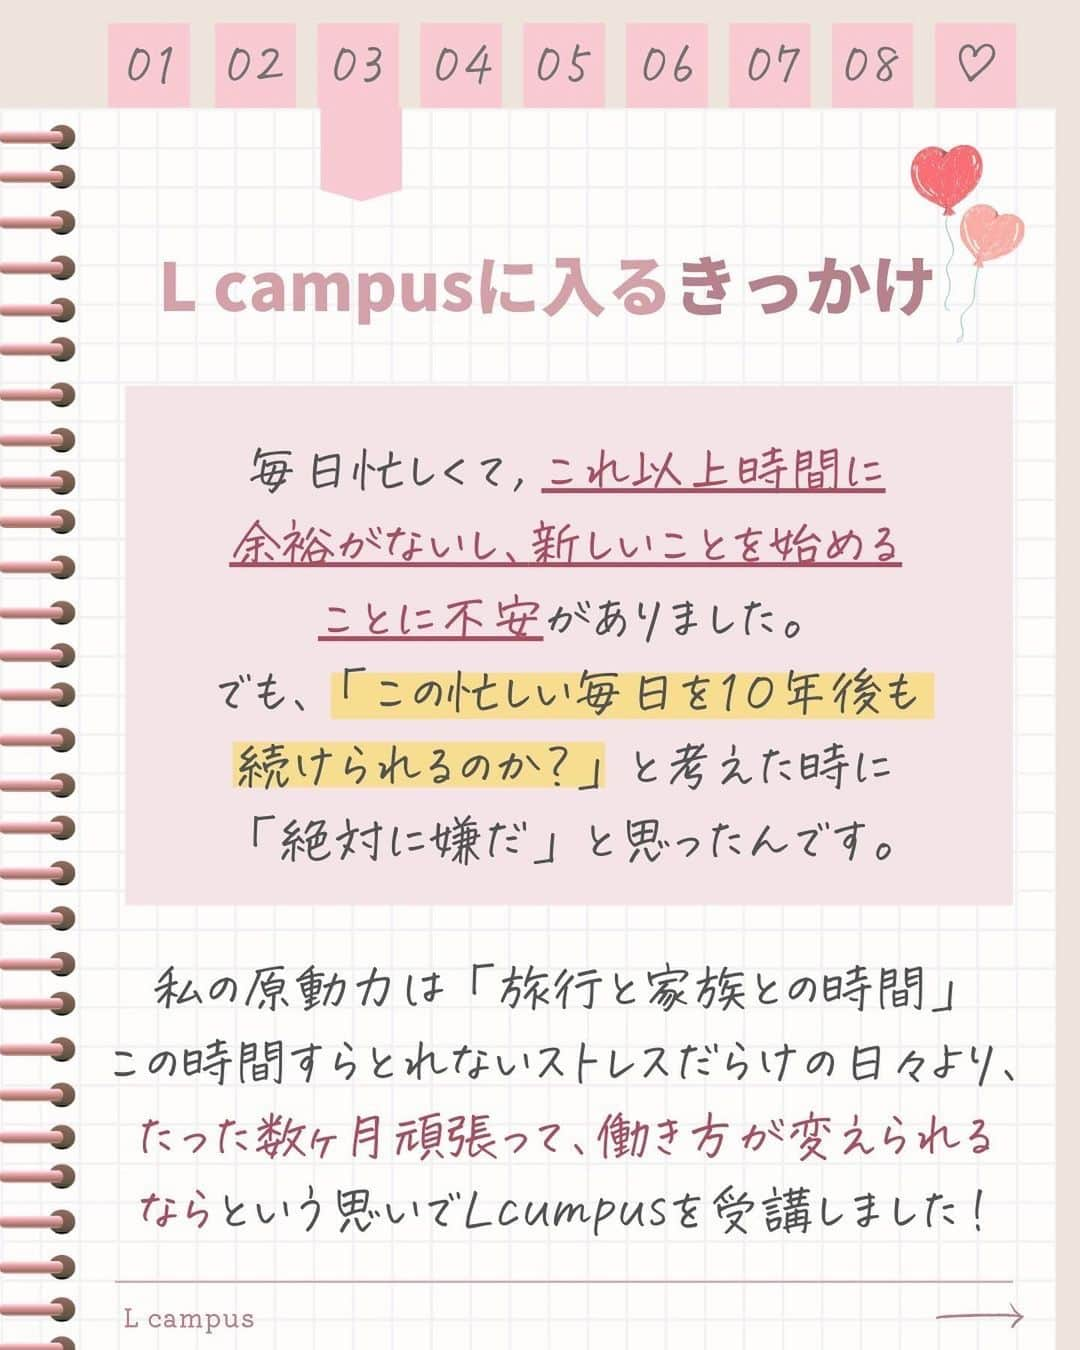 01 02 03 04 05 06 07 08 ♡
L campusに入るきっかけ
毎日忙しくて,これ以上時間に
余裕がないし、新しいことを始める
ことに不安がありました。
でも、「この忙しい毎日を10年後も
続けられるのか?」と考えた時に
「絶対に嫌だ」と思ったんです。
私の原動力は「旅行と家族との時間」
この時間すらとれないストレスだらけの日々より、
たった数ヶ月頑張って、働き方が変えられる
ならという思いでLcumpusを受講しました!
L campus